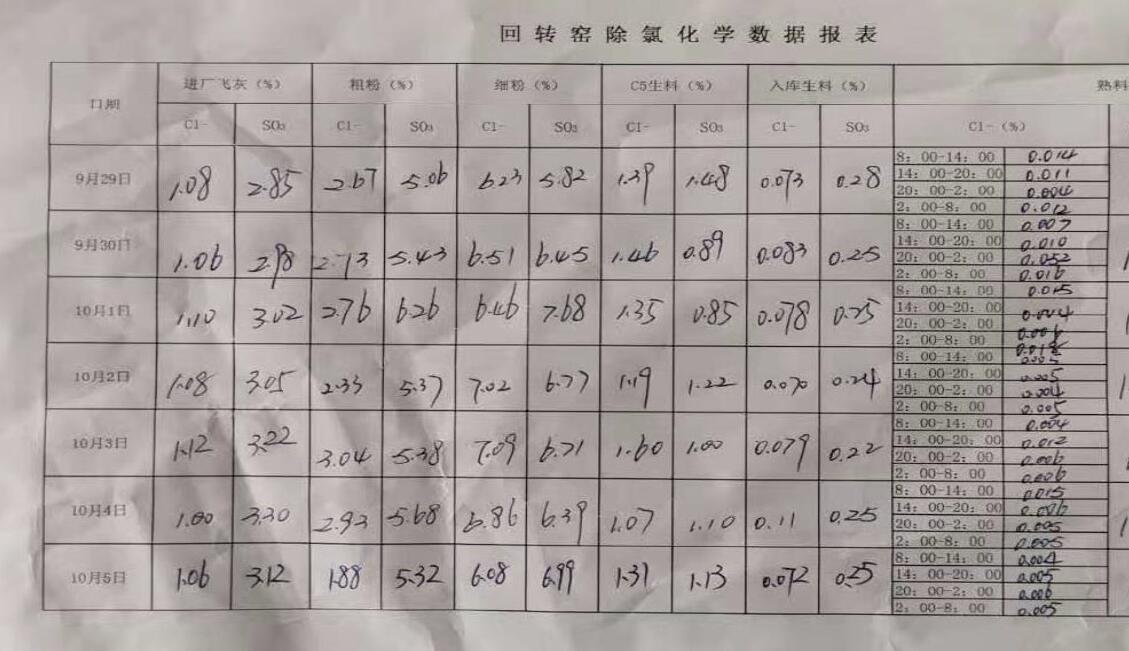 回转窑除氯化学数据报表
日期 进厂飞灰(%) 粗粉(%) 细粉(%) C5生料(%) 入库生料(%) 熟料
Cl- SO₃ Cl- SO₃ Cl- SO₃ Cl- SO₃ Cl- SO₃ Cl-(%)
9月29日 1.08 2.85 2.67 5.06 6.23 5.82 1.39 1.48 0.073 0.28
8:00-14:00 0.014
14:00-20:00 0.011
20:00-2:00 0.004
2:00-8:00 0.012
9月30日 1.06 2.98 2.73 5.43 6.51 6.45 1.46 0.89 0.083 0.25
8:00-14:00 0.007
14:00-20:00 0.010
20:00-2:00 0.052
2:00-8:00 0.016
10月1日 1.10 3.02 2.76 6.26 6.46 7.68 1.35 0.85 0.078 0.25
8:00-14:00 0.015
14:00-20:00 0.004
20:00-2:00 0.006
2:00-8:00
10月2日 1.08 3.05 2.33 5.37 7.02 6.77 1.19 1.22 0.070 0.24
8:00-14:00 0.005
14:00-20:00 0.005
20:00-2:00 0.004
2:00-8:00 0.005
10月3日 1.12 3.22 3.04 5.38 7.09 6.71 1.60 1.00 0.079 0.22
8:00-14:00 0.004
14:00-20:00 0.012
20:00-2:00 0.006
2:00-8:00 0.006
10月4日 1.00 3.30 2.93 5.68 6.86 6.39 1.07 1.10 0.11 0.25
8:00-14:00 0.015
14:00-20:00 0.006
20:00-2:00 0.005
2:00-8:00 0.005
10月5日 1.06 3.12 1.88 5.32 6.08 6.99 1.31 1.13 0.072 0.25
8:00-14:00 0.004
14:00-20:00 0.005
20:00-2:00 0.006
2:00-8:00 0.005